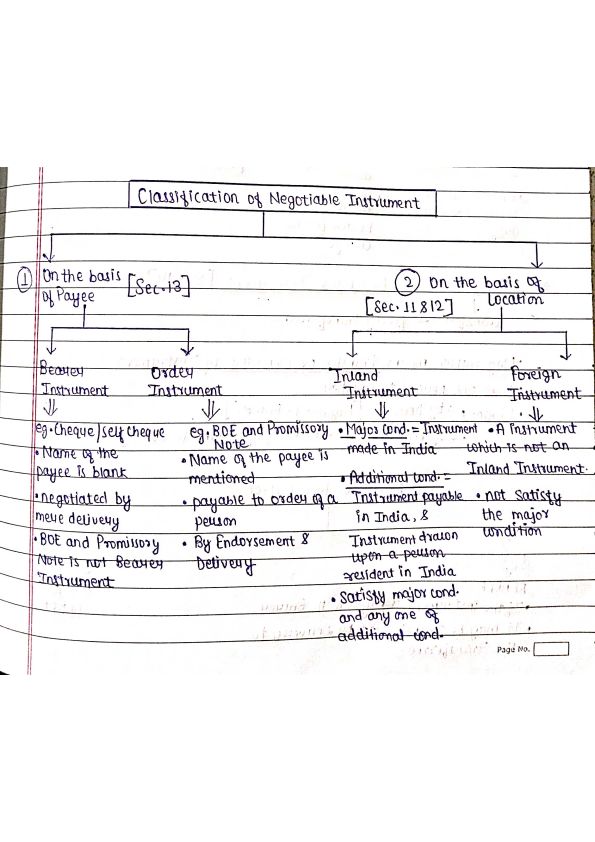 Classification of Negotiable Instrument
① On the basis of Payee [Sec.13]
② On the basis of Location
[Sec. 11 & 12]
Bearer Instrument
eg. Cheque/self cheque
• Name of the
payee is blank
• negotiated by
mere delivery
• BOE and Promissory
Note is not Bearer
Instrument
Order Instrument
eg. BOE and Promissory
Note
• Name of the payee is
mentioned
• payable to order of a
person
• By Endorsement &
Delivery
Inland
Instrument
• Major Cond. = Instrument
made in India
• Additional cond. =
Instrument payable
in India, &
Instrument drawn
upon a person
resident in India
• Satisfy major cond.
and any one of
additional cond.
Foreign
Instrument
• A instrument
which is not an
Inland Instrument.
• not satisfy
the major
condition
Page No.